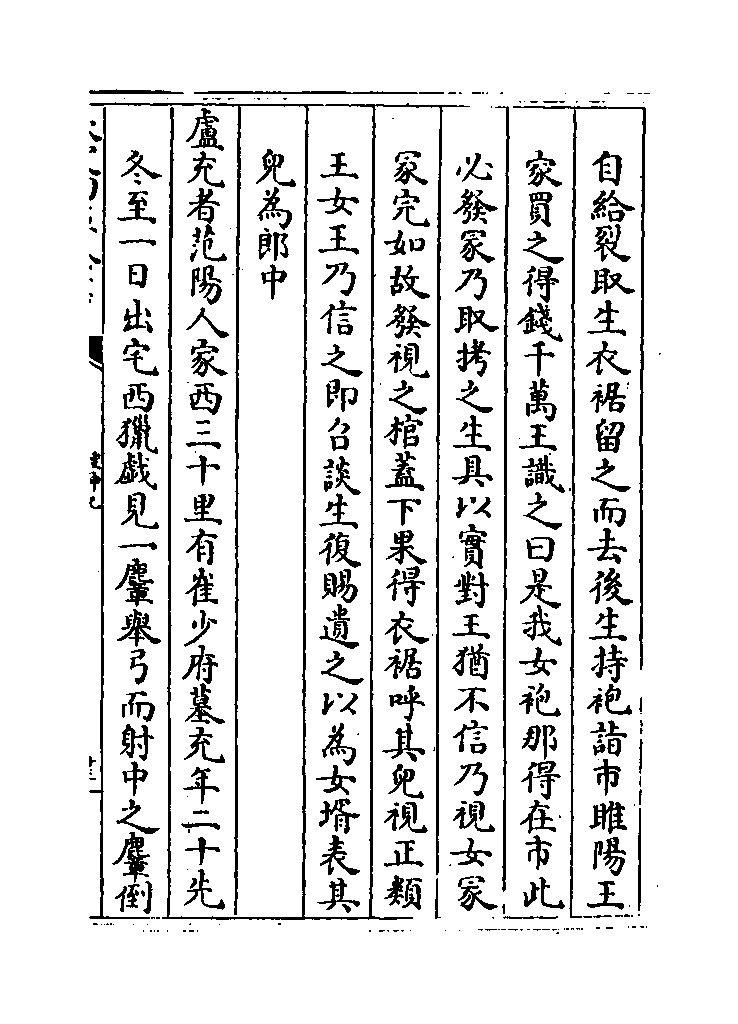 自給裂取生衣裾留之而去後生持袍詣市睢陽王
家買之得錢千萬王識之曰是我女袍那得在市此
必發冡乃取拷之生具以實對王猶不信乃視女冡
冡完如故發視之棺蓋下果得衣裾呼其兒視正類
王女王乃信之即召談生復賜遺之以為女壻表其
兒為郎中
盧充者范陽人家西三十里有崔少府墓充年二十先
冬至一日出宅西獵戯見一麞舉弓而射中之麞倒